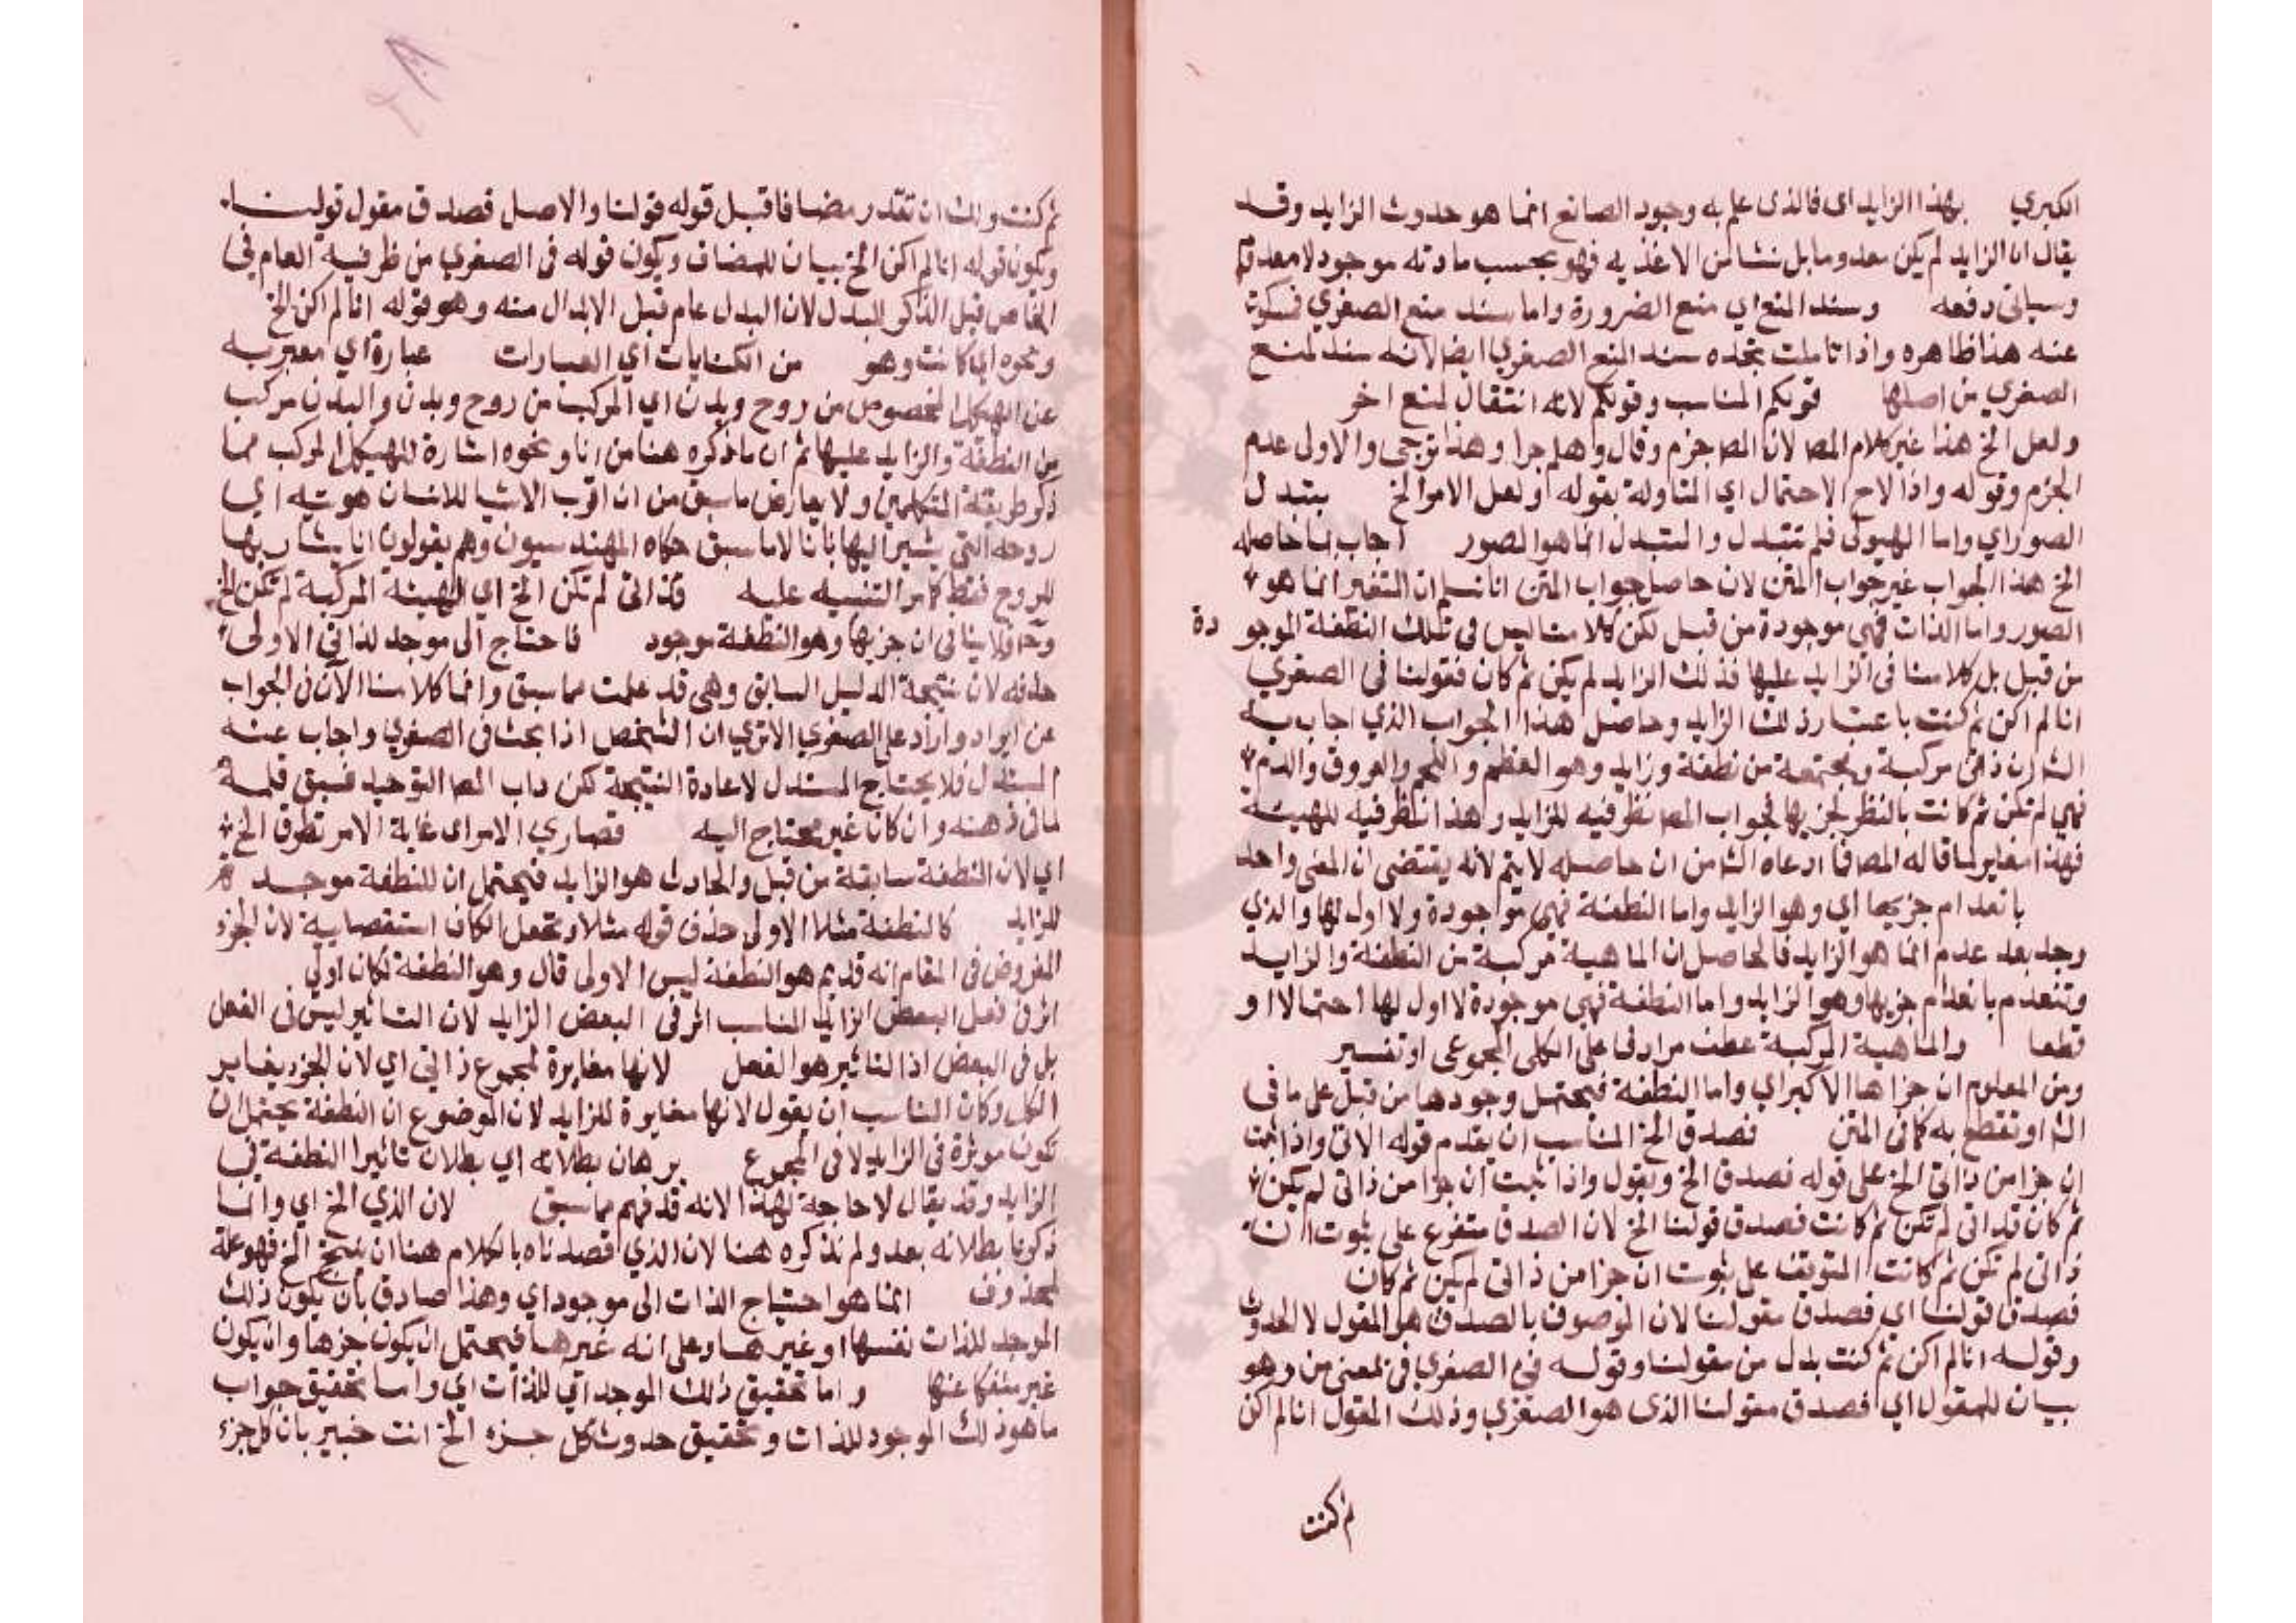 الكبري بهذا الزايد اى فالذى علم به وجود الصانع انما هو حدوث الزايد وقد
يقال ان الزايد لم يكن معدوما بل نشا من الاغذيه فهو بحسب مادته موجود لا معدوم
وسياتى دفعه وسند المنع اي منع الضرورة واما سند منع الصغري فسكوت
عنه هذا ظاهره واذا تاملت تجده سند المنع الصغري ايضا لانه سند لمنع
الصغري من اصلها قولكم المناسب وقولكم لانه انتقال لمنع اخر
ولعل الخ هذا غير كلام المص لان المص جزم وقال وهلم جرا وهذا ترجى والاولى عدم
الجزم وقوله واذا لاح الاحتمال اي المتاولة بقوله او لعل الامر الخ بتبدل
الصور اي واما الهيولى فلم تتبدل والتبدل انما هو الصور اجاب لما حاصله
الخ هذا الجواب غير جواب المتن لان حاصل جواب المتن انا نسلم ان التغير انما هو
الصور واما الذات فهى موجودة من قبل لكن كلامنا ليس في تلك النطفة الموجو دة
من قبل بل كلامنا فى الزايد عليها فذلك الزايد لم يكن ثم كان فقولنا فى الصغري
انا لم اكن ثم كنت باعتبار ذلك الزايد وحاصل هذا الجواب الذي اجاب به
الش ان ذاتى مركبة ومجتمعة من نطفة وزايد وهو العظم واللحم والعروق والدم
فهي لم تكن ثم كانت بالنظر لجزيها فجواب المص نظر فيه للزايد وهذا نظر فيه للهيئة
فهذا مغاير لما قاله المص فما ادعاه الش من ان حاصله لا يتم لانه يقتضى ان المعنى واحد
بانعدام جزيها اي وهو الزايد واما النطفة فهى موجودة ولا اول لها والذي
وجد بعد عدم انما هو الزايد فالحاصل ان الماهية مركبة من النطفة والزايد
وتنعدم بانعدام جزيها وهو الزايد واما النطفة فهى موجودة لا اول لها احتمالا او
قطعا والماهية المركبة عطف مرادف على الكلى المجموعى او تفسير
ومن المعلوم ان جزاها الاكبر اي واما النطفة فيحتمل وجودها من قبل على ما فى
الش او نقطع به كما فى المتن فصدق الخ المناسب ان يقدم قوله الاتى واذا ثبت
ان جزا من ذاتى الخ على قوله فصدق الخ ويقول واذا ثبت ان جزا من ذاتى لم يكن
ثم كان فذاتى لم تكن ثم كانت فصدق قولنا الخ لان الصدق متفرع على ثبوت ان
ذاتى لم تكن ثم كانت المتوقف على ثبوت ان جزا من ذاتى لم يكن ثم كان
فصدق قولنا اي فصدق مقولنا لان الموصوف بالصدق هو المقول لا الحدوث
وقوله انا لم اكن ثم كنت بدل من مقولنا وقوله فى الصغري فى بمعنى من وهو
بيان للمقول اي فصدق مقولنا الذى هو الصغري وذلك المقول انا لم اكن
ثم كنت
ثم كنت ولك ان تقدر مضافا قبل قوله قولنا والاصل فصدق مقول قولنا
ويكون قوله انا لم اكن الخ بيان للمضاف ويكون قوله فى الصغري من ظرفية العام فى
الخاص قبل الذكر للبدل لان البدل عام قبل الابدال منه وهو قوله انا لم اكن الخ
ونحوه وهو من الكنايات اي العبارات عبارة اي معبر به
عن الهيكل المخصوص من روح وبدن اي المركب من روح وبدن والبدن مركب
من النطفة والزايد عليها ثم ان ما ذكره هنا من انا ونحوه اشارة للهيكل المركب مما
ذكر طريقة المتكلمين ولا يعارض ما سبق من ان اقرب الاشيا للانسان هويته اي
روحه التي يشير اليها بانا لان ما سبق حكاه المهندسيون وهم يقولون انا يشار بها
للروح فقط كما مر التنبيه عليه فذاتى لم تكن الخ اي الهيئة المركبة لم تكن الخ
وح فلا ينافى ان جزيها وهو النطفة موجود فاحتاج الى موجد لذاتى الاولى
حذفه لان نتيجة الدليل السابق وهى قد علمت مما سبق وانما كلامنا الآن فى الجواب
عن ايراد وارد على الصغري الا تري ان الشخص اذا بحث فى الصغري واجاب عنه
المستدل فلا يحتاج المستدل لاعادة النتيجة لكن داب المص التوحيد فسبق قلمه
لما فى ذهنه وان كان غير محتاج اليه قصاري الامر اى غاية الامر تطرق الخ
اي لان النطفة سابقة من قبل والحادث هو الزايد فيحتمل ان للنطفة موجد
للزايد كالنطفة مثلا الاولى حذف قوله مثلا وتجعل الكاف استقصايية لان الجزء
المفروض فى المقام انه قديم هو النطفة ليس الا ولو قال وهو النطفة لكان اولي
اثر فى فعل البعض الزايد المناسب اثر فى البعض الزايد لان التاثير ليس فى الفعل
بل فى البعض اذ التاثير هو الفعل لانها مغايرة لمجموع ذاتي اي لان الجزء يغاير
الكل وكان المناسب ان يقول لانها مغايرة للزايد لان الموضوع ان النطفة يحتمل ان
تكون موثرة فى الزايد لا فى المجموع برهان بطلانه اي بطلان تاثير النطفة في
الزايد وقد يقال لا حاجة لهذا لانه قد فهم مما سبق لان الذي الخ اي وانما
ذكرنا بطلانه بعد ولم نذكره هنا لان الذي قصدناه بالكلام هنا ان ينتج الخ فهو علة
لمحذوف انما هو احتياج الذات الى موجد اي وهذا صادق بان يكون ذلك
الموجد للذات نفسها او غيرها وعلى انه غيرها فيحتمل ان يكون جزها وان يكون
غير منفكا عنها واما تحقيق ذلك الموجد اي للذات اي واما تحقيق جواب
ما هو ذلك الموجود للذات وتحقيق حدوث كل جزء الخ انت خبير بان كل جزء